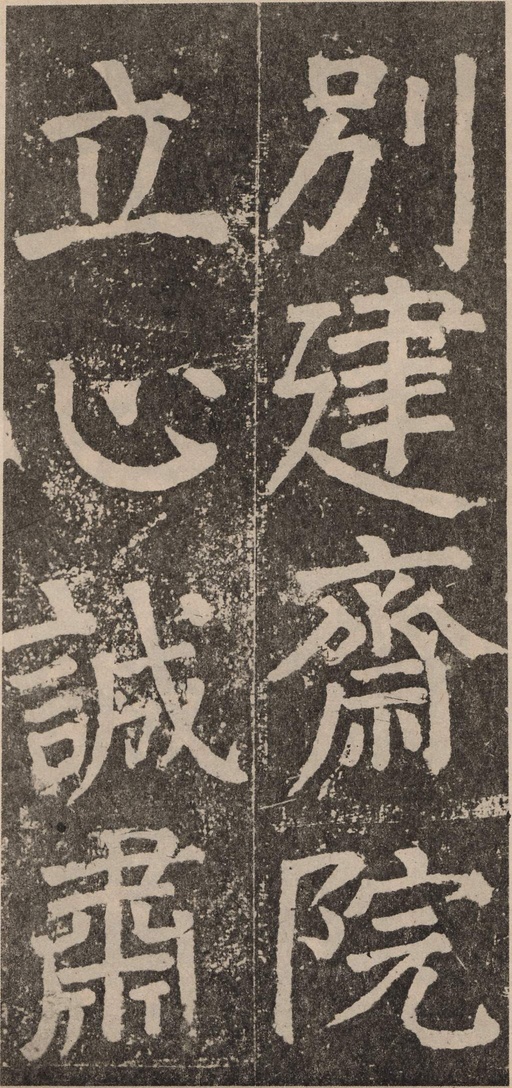 別建齋院
立心誠肅